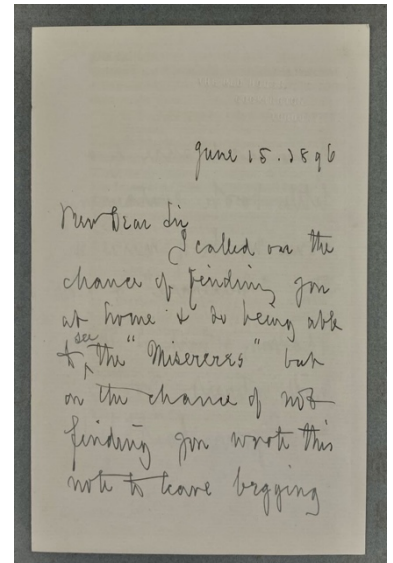 June 15. 1896
My Dear Sir
I called on the
chance of finding you
at home & so being able
to see the "Misereres" but
on the chance of not
finding you wrote this
note to leave begging